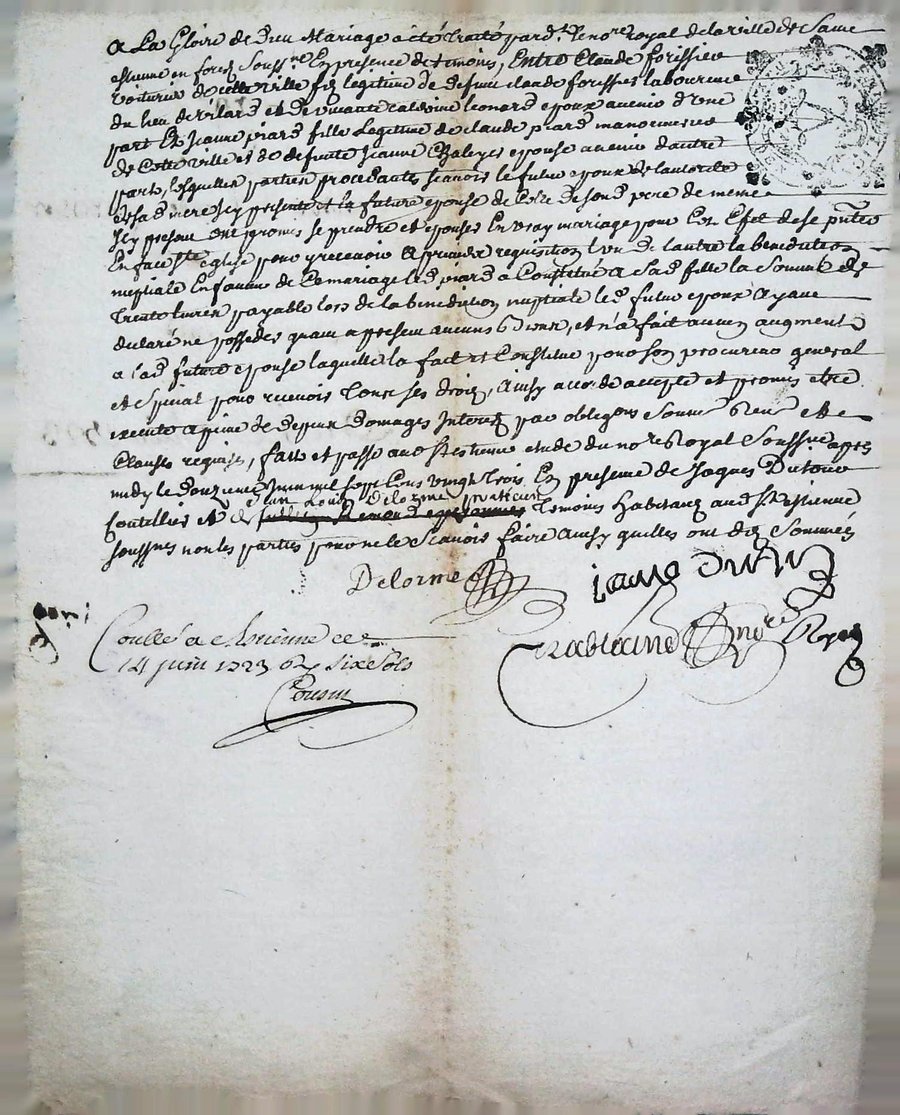 A La Gloire de Dieu Mariage a été traité pard.t le no.re royal de la ville de Saint
estienne en forez souss.né En presence de temoins, Entre Claude forissier
voiturier de cette ville fils legitime de deffunt claude forissier laboureur
du lieu de vilars et de vivante leonard epoux avenir d'une
part Et Jeanne piard fille Legitime de claude piard manoeuvre
de Cette ville et de defunte Jeanne Chaleyer epouse avenir dautre
part, lesquelles parties procedantes scavoir le futur epoux de lautorité
de sad mere icy presente et la future epouse de Celle de sond pere de meme
Icy present ont promis se prendre et epouser En vray mariage pour Cet Efet de se p.nter
En face s.te eglise pour y recevoir a premiere requisition l'un de lautre la benediction
nuptiale En faveur de Ce mariage led piard a Constitué a sad fille la Somme de
trente livres payable lors de la benediction nuptiale led futur epoux ayant
declaré ne posseder quant a present aucuns biens, et n'a fait aucun augment
a lad future epouse laquelle la fait et Constitue pour son procureur general
et special pour recevoir tous ses droits, Ainsy accordé accepté et promis etre
executé a peine de depens domages Interets par obligons soums renons et
Clauses requises, fait et passé aud St estienne etude du no.re Royal Soussigné apres
midy le douzieme Juin mil sept Cens vingt trois En presence de Jaques
Coutellier et de Louis delorme praticien temoins habitants aud St estienne
soussnés non les parties pour ne le scavoir faire ainsy quelles ont dit de ce sommées
Delorme
Con.lé a St etienne ce
14 juin 1723 six sols
Cousin
no.re Royal